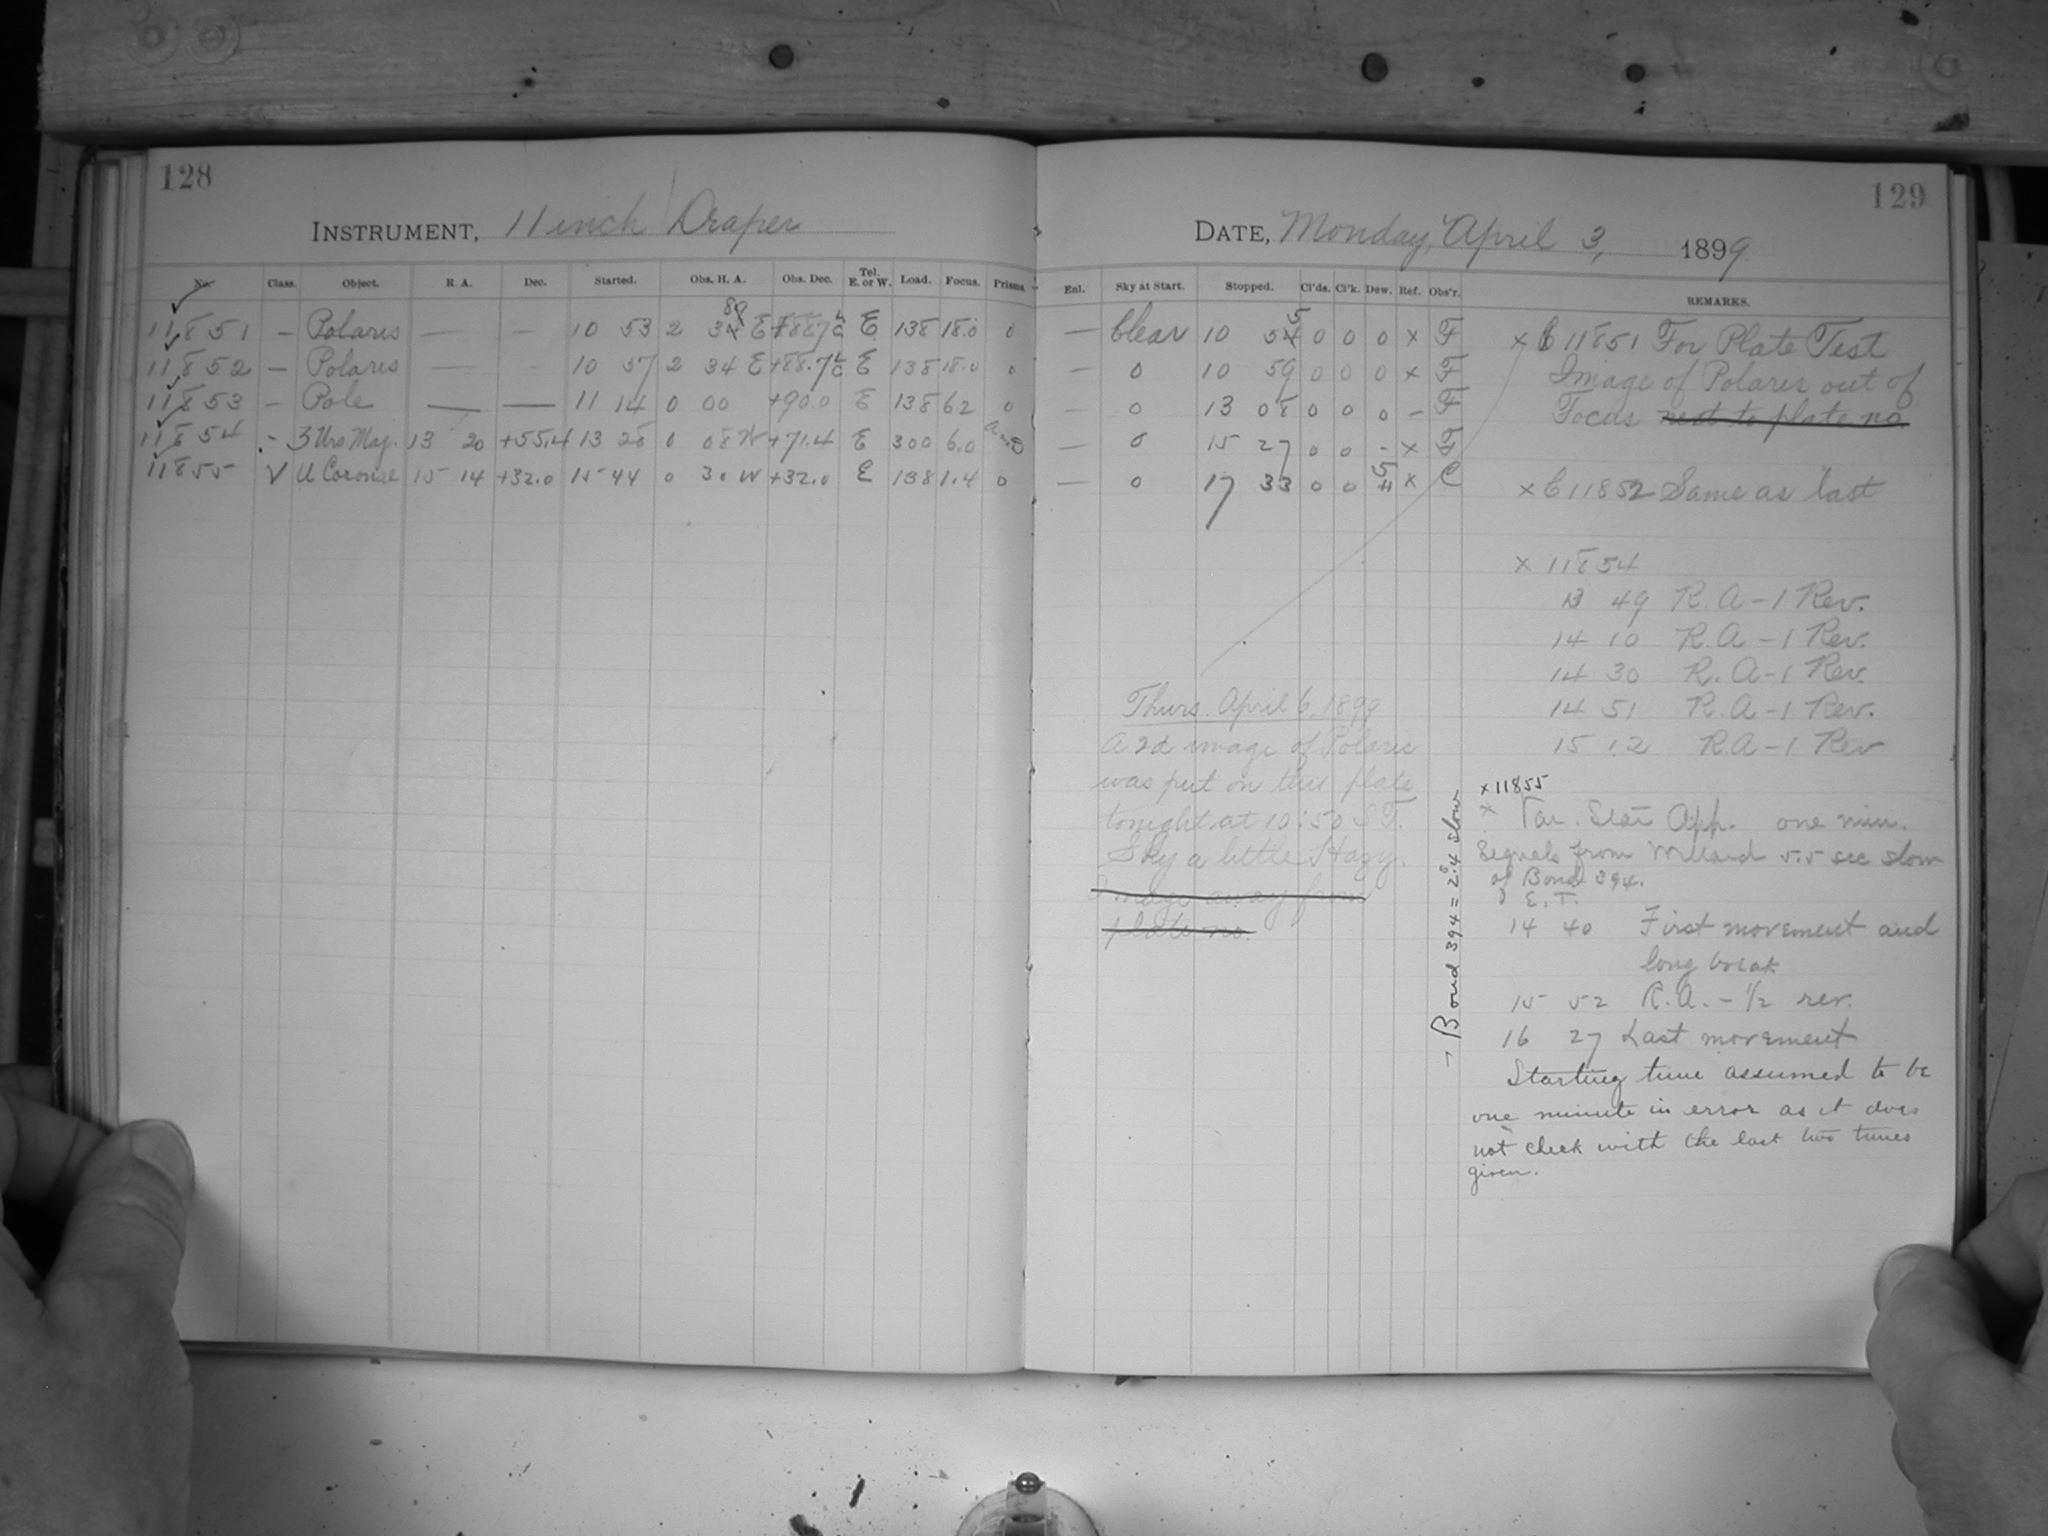 128
INSTRUMENT, 11 inch Draper
No. Class. Object. R. A. Dec. Started. Obs. H. A. Obs. Dec. Tel. E. or W. Load. Focus. Prisms.
11851 — Polaris — — 10 53 2 E E 138 18.0 0
11852 — Polaris — — 10 57 2 34 E +88.7 E 138 18.0 0
11853 — Pole — — 11 14 0 00 +90.0 E 138 6.2 0
11854 - 3 Urs Maj. 13 20 +55.4 13 28 0 08 W +71.4 E 300 6.0
11855 V U Coronae 15 14 +32.0 15 44 0 30 W +32.0 E 138 1.4 0
129
DATE, Monday, April 3, 1899
Enl. Sky at Start. Stopped. Cl'ds. Cl'k. Dew. Ref. Obs'r. REMARKS.
— Clear 10 55 0 0 0 x F
— 0 10 59 0 0 0 x F
— 0 13 08 0 0 0 — F
— 0 15 27 0 0 - x F
— 0 17 33 0 0 x C
x C 11851 For Plate Test
Image of Polaris out of
Focus next to plate no.
x C 11852 Same as last
x 11854
13 49 R.A - 1 Rev.
14 10 R.A - 1 Rev.
14 30 R.A - 1 Rev.
14 51 R.A - 1 Rev.
15 12 R.A - 1 Rev
Thurs. April 6, 1899
A 2d image of Polaris
was put on this plate
tonight at 10:50 S.T.
Sky a little Hazy.
Image away from
plate no.
— Bond 394 = 2s.4 slow
x 11855
x Var. Star App. one min.
Signals from Willard 5.5 sec slow
of Bond 394.
E.T.
14 40 First movement and
long break
15 52 R.A. - 1/2 rev.
16 27 Last movement
Starting time assumed to be
one minute in error as it does
not check with the last two times
given.